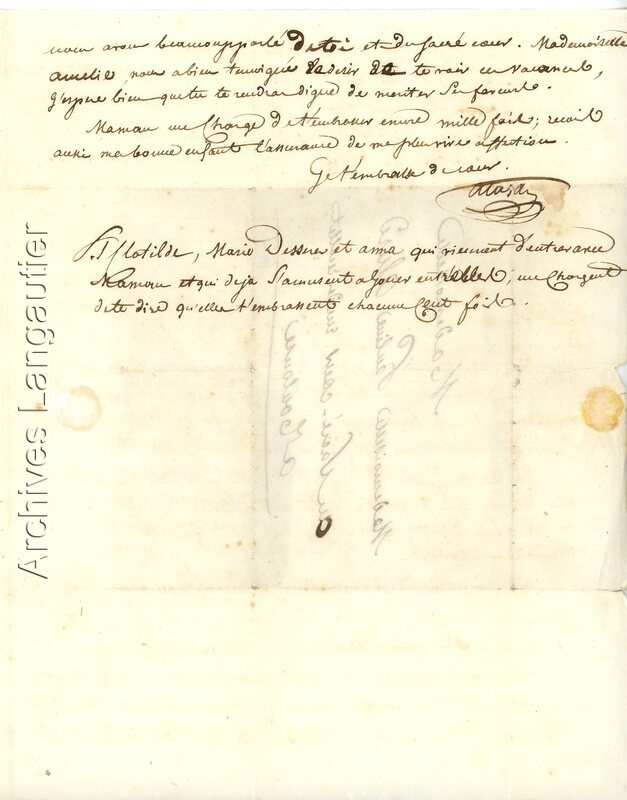 nous avons beaucoup parlé de toi et du sacré cœur. Mademoiselle
amelie, nous a bien temoignée le desir de te voir en vacances,
j'espere bien que tu te rendras digne de meriter ses faveurs.
Maman me charge de t'embrasser encore mille fois; recois
aussi ma bonne enfant l'assurance de ma plus vive affection.
Je t'embrasse de cœur.
P.S Clotilde, Marie Desserer et anna qui viennent d'entrer avec
Maman et qui deja s'amusent a jouer entr'elles, me chargent
de te dire qu'elles t'embrassent chacune cent fois.
Mademoiselle Pauline
au Sacré-cœur
a Toulouse
Archives Langautier